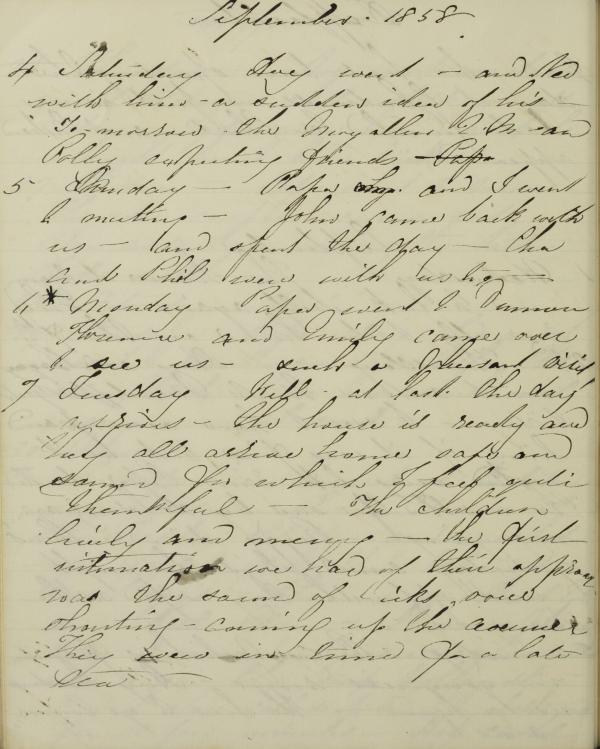 September. 1858
4 Saturday they went - and Ned
with him - a sudden idea of his -
To-morrow the
Polly expecting friends - Papa
5 Sunday - Papa and I went
to meeting - John came back with
us - and spent the day - Cha
and Phil were with us too -
6 * Monday Papa went to
Florence and Emily came over
to see us - such a pleasant visit
7 Tuesday Well - at last the day
arrives - the house is ready and
they all arrive home safe and
sound for which I feel quite
thankful - The children
lively and merry - the first
intimation we had of their approach
was the sound of voice
shouting - coming up the avenue
They were in time for a late
tea -